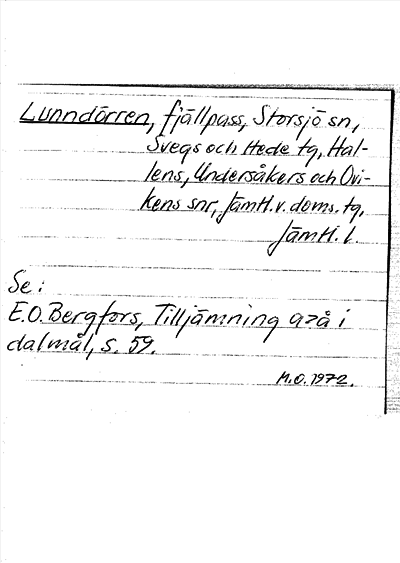 Lunndörren, fjällpass, Storsjö sn,
Svegs och Hede tg, Hal-
lens, Undersåkers och Ovi-
kens snr, Jämtl. v. doms. tg,
Jämtl. l.
Se:
E.O. Bergfors, Tilljämning a>å i
dalmål, s. 59.
M.O. 1972.